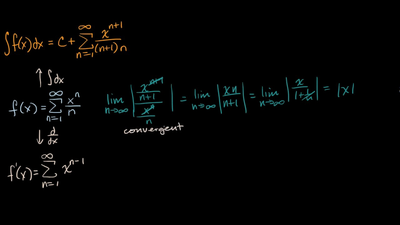 ∫f(x)dx = C + ∑_{n=1}^{∞} x^{n+1}/((n+1)n)
↑ ∫dx
f(x) = ∑_{n=1}^{∞} x^n/n
↓ d/dx
f'(x) = ∑_{n=1}^{∞} x^{n-1}
lim_{n→∞} |(x^{n+1}/(n+1))/(x^n/n)| = lim_{n→∞} |xn/(n+1)| = lim_{n→∞} |x/(1+1/n)| = |x|
convergent